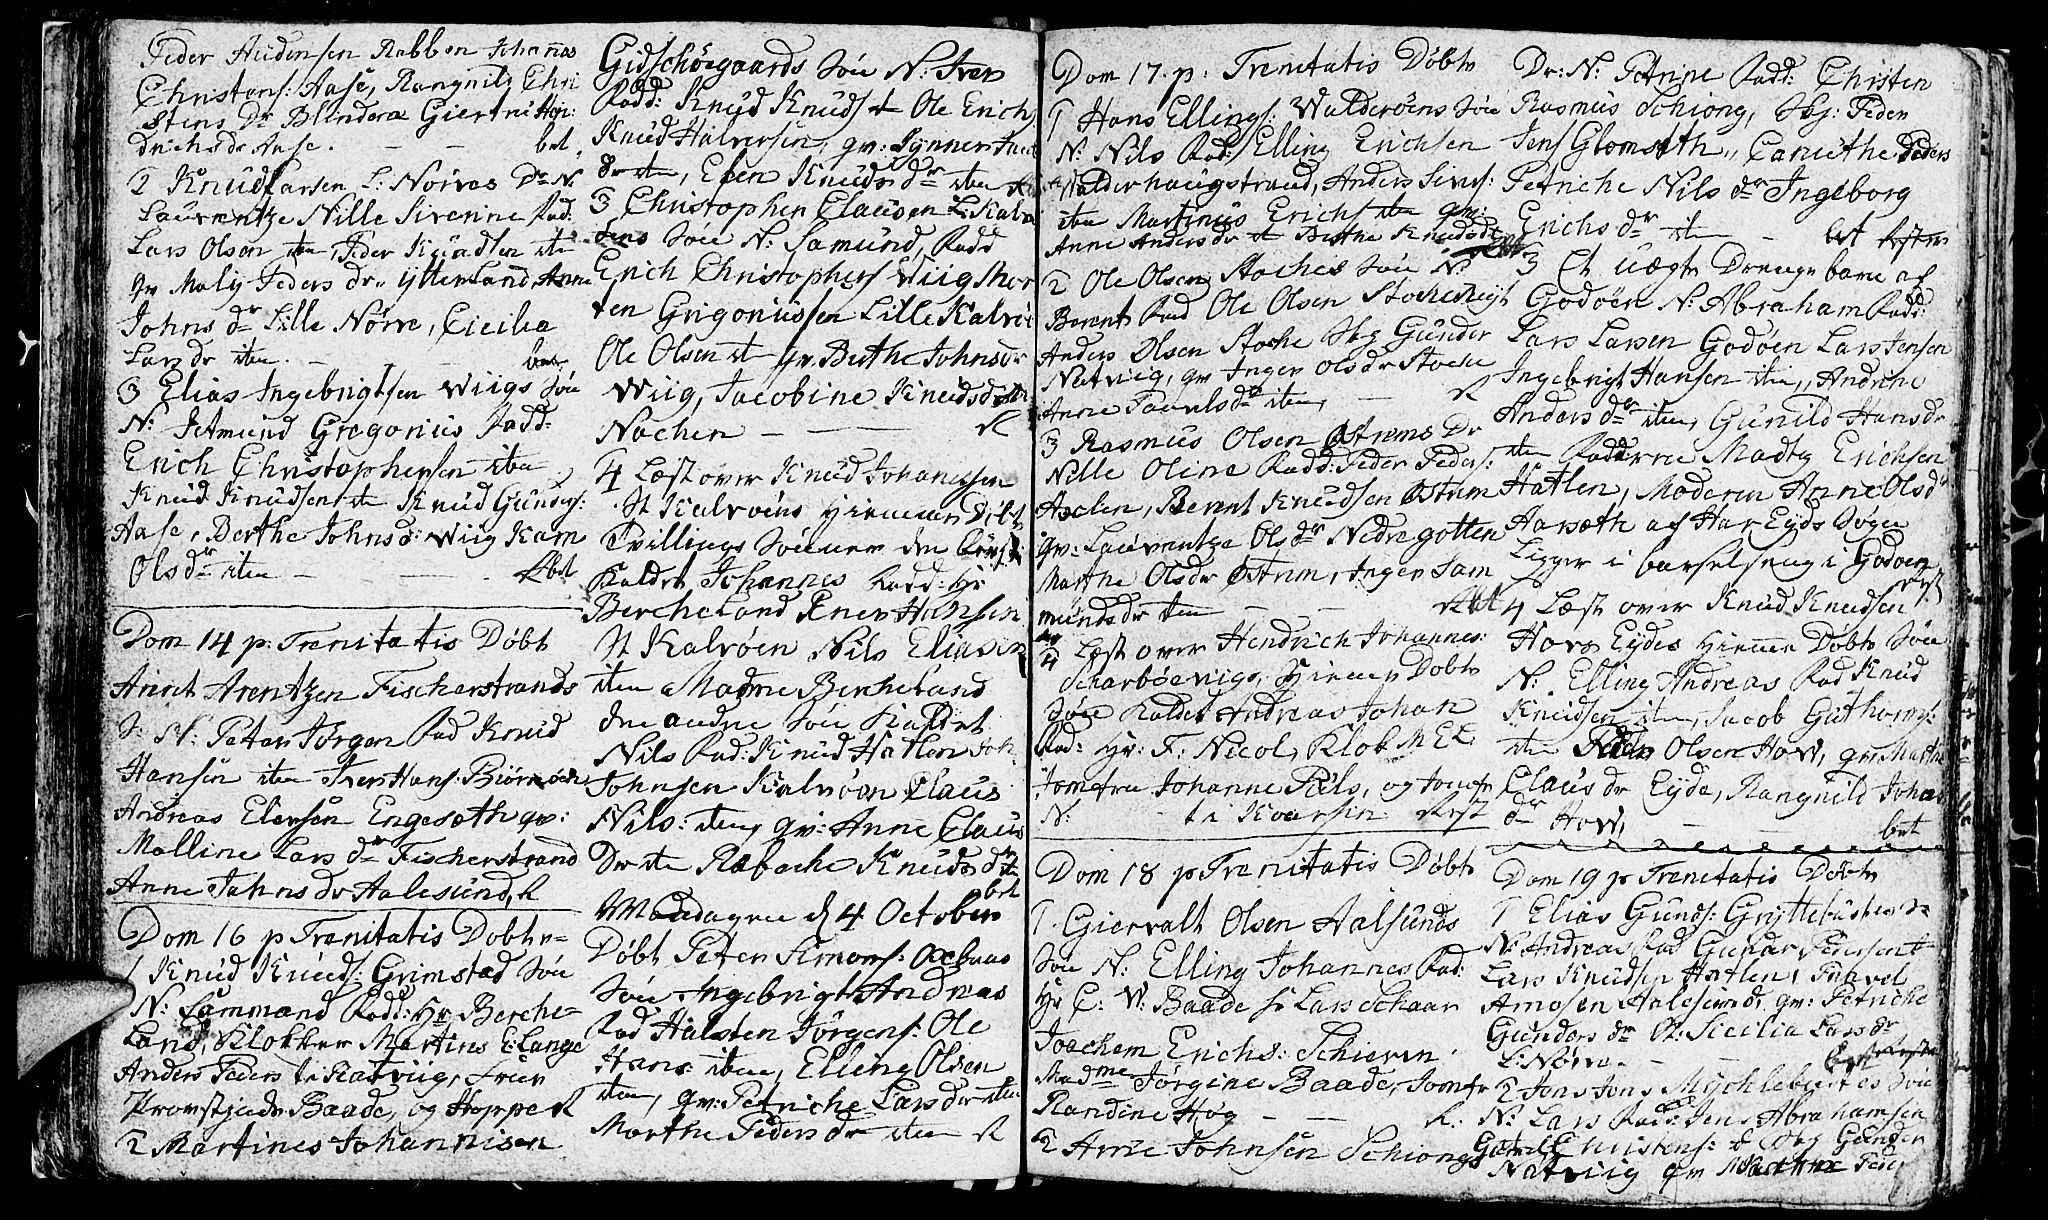 Peder Audensen Rabben Johañes
Christens: Aase, Rangnild Chri
stens Dr Blindem Giertru Hen:
drichsdr Aase. — — bet
2 Knud Larsen L: Nörves Dr N:
Laurentze Nille Siverine Fad:
Lars Olsen iten Peder Knudsen iten
qv Maly Peders dr ytterland, Anne
Johns dr Lille Nörve, Cicilia
Lars dr iten. — bet
3 Elias Ingebrigtsen Wiigs Sön
N: Petmund Gregorius Fadd:
Erich Christophersen iten
Knud Knudsen iten Knud Gunders:
Aase, Berthe Johnsd: Wiig Karn
Ols dr iten — — Rbet
Dom 14 p: Trenitatis Döbt
Arent Arentzen Fischerstrands
S: N: Peter Jörgen Fad Knud
Hansen iten Iver Hans: Biörnöen
Andreas Elersen Engesæth qv:
Malline Lars dr Fischerstrand
Anne Jahns dr Aalesund, R
Dom 16 p Trenitatis Dobte
1 Knud Knuds: Grimstad Sön
N: Lammand Fadd: Hr Berche=
Land, Klokker Martins E: Lange
Anders Peders Ratviig, Frue
Provstinde Baade, og Hoppe R
2 Martines Johannisen
Gidschöegaards Sön N: Iver
Fadd: Knud Knuds it Ole Erich
Knud Halversen, qv: Synnev Knud
dr iten, Elen Knuds dr iten R
3 Christopher Clausen L: Kalv
öens Sön N: Samund, Fadd
Erich Christophers Wiig Mor
ten Grigoriussen Lille Kalvöe
Ole Olsen it qv. Birthe Johnsdr
Wiig, Jacobine Knudsdr
Nochen — — R
4 Læst over Knud Johanessen
St Kalvöens Hiemme Döbt
Tvillings Sönner den först
Kaldet Johannes Fadd: Hr
Bercheland Iver Hansen
St Kalvöen Nils Eliasen
iten Madme Bercheland
den anden Sön Kaldet
Nils Fad: Knud Hatlen Joh
Johnsen Kalvöen Claus
Nils: iten, qv: Anne Claus
Dr iten Rebache Knuds dr it
bet
Mandagen d 4 October
Döbt Peter Simons: Aebaas
Sön Ingebrigt Andreas
Fad Halsten Jörgens: Ole
Hans iten, Elling Olsen
iten, qv: Petriche Lars dr iten
Marthe Peders dr iten R
Dom 17. p: Trenitatis Döbte
1 Hans Ellings: Walderöens Sön
N: Nils Fad: Elling Erichsen
Walderhaugstrand, Anders Sivers:
iten Martinus Erichs iten qv:
Anne Anders dr it Birthe Knudsdr
2 Ole Olsen Stoches Sön N:
Berent Fad Ole Olsen Stochs
Anders Olsen Stoche Sbg Gunder
Natvig, qv Inger Ols dr Stoche
Anne Pavels dr iten, — R
3 Rasmus Olsen Østrems Dr
Nille Oline Fadd: Peder Peders:
Aselen, Bernt Knudsen Østrem
qv: Lauventze Ols dr Nedregotten
Marthe Olsdr Østrem, Inger Sam
mundsdr iten — — Rbet
4 Læst over Hendrich Johannes:
Scharbövigs, Hiemme Dobte
Sön Kaldet Andreas Johan
Fad: Hr: F: Nicol, Klok M E L
Jomfru Johanne Riis, og Jomfr
N: — Rest
Dom 18 p Trenitatis Döbt
1 Giervalt Olsen Aalsunds
Sön N: Elling Johannes Fad:
Hr C: W: Baade Sr Lars Schaar
Joachem Erichs: Schierin
Madme Jörgine Baade, Jomfr
Randine Hög — — R:
2 Arne Johnsen Schiongs
Dr: N: Petrine Fadd: Christen
Rasmus Schiong, Sbj: Peder
Jens Glomseth, Canuthe Peders
Petriche Nils dr Ingeborg
Erichs dr iten — bet
3 Et uægte Drenge barn af
Godöen N: Abraham Fadd:
Lars Larsen Godöen Lars Jensen
Ingebrigt Hansen iten, Andrine
Anders dr iten, Gunild Hansdr
iten Faderne Madts Erichsen
Hatlen, Moderen Anne Olsd
Aarseth af Har Eyds Sogn
Ligger i barselseng i Godöen
rest
4 Læst over Knud Knudsen
Hovs Eydes Hiemme Döbte Sön
N: Elling Andreas Fad Knud
Knudsen iten, Jacob Guthorms:
iten Peder Olsen How, qv: Marthe
Claus dr Eyde, Rangnild Johan
dr How, — — bet
Dom 19 p Trenitatis Döbte
1 Elias Gunds: Gryttebustens S:
N: Andreas Fad Gunder Pedersen it
Lars Knudsen Hatlen, Pavel
Amosen Aalesund, qv: Petriche
Gunders dr it: Sicilia Lars dr
L: Nörve — —
2 Jons Jons Mychlebust es Sön
N: Lars Fad: Jens Abrahamsen
Gabriel Christens: it Sbg Gunder
Natviig qv Marthe Peder